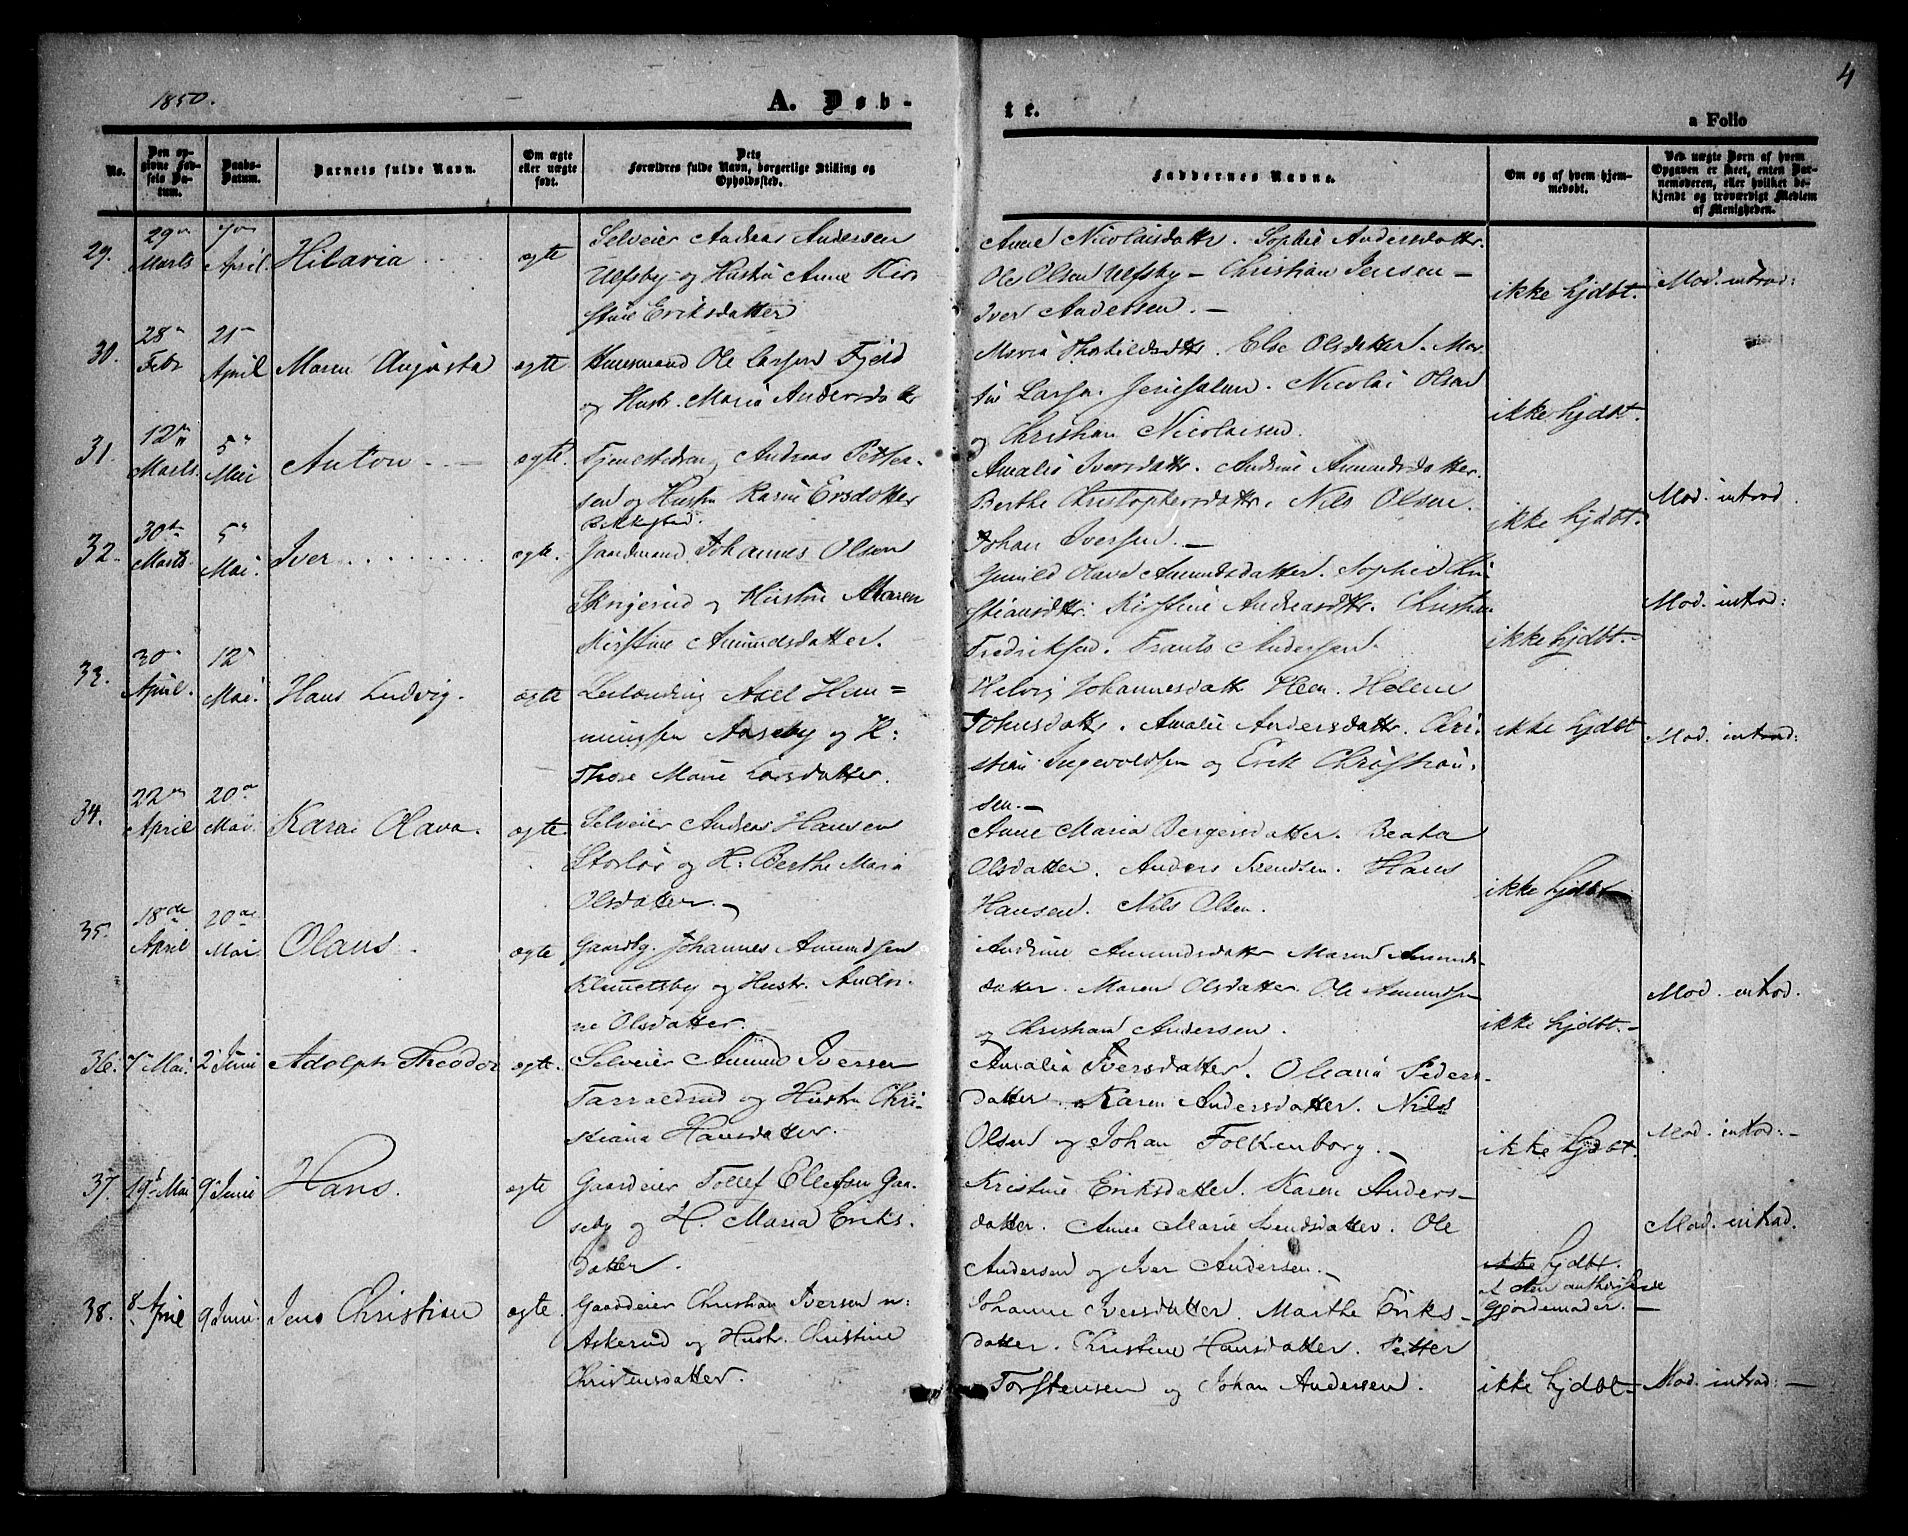 1850.
A. Døb-
te.
a Folio
4
No.
Den op-
givne Fød-
sels Da-
tum.
Daabs-
Datum.
Barnets fulde Navn.
Om ægte
eller uægte
født.
Dets
Forældres fulde Navn, borgerlige Stilling og
Opholdssted.
Faddernes Navne.
Om og af hvem hjem-
medøbt.
Ved uægte Børn af hvem
Opgaven er skeet, enten Bar-
nemoderen, eller hvilket be-
kjendt og troværdigt Medlem
af Menigheden.
29.
29de
Marts
7de
April.
Hilaria
ægte
Selveier Andreas Andersen
Ulfsby og Hustru Anne Kir-
stine Eriksdatter
Anne Nicolaisdattr. Sophie Andersdattr.
Ole Olsen Ulfsby – Christian Jensen –
Iver Andersen. –
ikke hjdbt.
Mod. introd:
30.
28
Febr
21
April
Maren Augusta
ægte
Huusmand Ole Larsen Fjeld
og Hustr. Maria Andersdattr
Maria Thorkildsdttr. Else Olsdatter. Mar-
tin Larsen Jerusalem. Nicolai Olsen
og Christian Nicolaisen.
ikke hjdbt.
31.
12
Marts.
5
Mai
Anton
ægte.
Tjenestedreng Andreas Petter-
sen og Hustru Karine Ersdatter
Amalie Iversdattr. Andrine Amundsdatter.
Berthe Christophersdattr. Nils Olsen.
Johan Iversen. –
ikke hjdbt.
Mod. introd.
32.
30te
Marts
5
Mai.
Iver
ægte.
Gaardmand Johannes Olsen
Skrigerud og Hustru Maren
Kirstine Amundsdatter.
Gunild Olava Amundsdatter. Sophie Kri-
stiansdttr. Kirstine Andreasdttr. Christian
Fredriksen. Frants Andersen.
ikke hjdbt.
Mod. introd:
33.
30
April.
12
Mai.
Hans Ludvig.
ægte
Leilænding Axel Hem-
mingsen Aaseby og H:
Thore Marie Larsdatter.
Helvig Johannesdattr Heen. Helene
Johnsdattr. Amalie Andersdattr. Chri-
stian Ingevoldsen og Erik Christian-
sen. –
ikke hjdbt
Mod. introd:
34.
22de
April
20de
Mai.
Karen Olava.
ægte.
Selveier Andreas Hansen
Storlør og H: Berthe Maria
Olsdatter. –
Anne Maria Bergersdatter. Beata
Olsdatter. Anders Svendsen. Hans
Hansen. Nils Olsen.
ikke hjdbt
35.
18de
April
20de
Mai
Olaus.
ægte
Gaardbr. Johannes Amundsen
Klametsby og Hustr. Andri-
ne Olsdatter. –
Andrine Amundsdatter Maren Amunds-
datter. Maren Olsdatter. Ole Amundsen
og Christian Andersen.
ikke hjdbt. –
Mod. introd.
36.
7 Mai.
2 Juni
Adolph Theodor
ægte.
Selveier Amund Iversen
Tarraldrud og Hustru Chri-
stiana Hansdatter.
Amalia Iversdatter. Oleana Peders-
datter. Karen Andersdatter. Nils
Olsen og Johan Folkenborg. –
ikke hjdbt.
Mod. introd: –
37.
19 Mai
9 Junie
Hans.
ægte
Gaardeier Tollef Ellefsen Gaa-
seby og H. Maria Eriks-
datter.
Kristine Eriksdatter. Karen Anders-
datter. Anne Marie Svendsdatter. Ole
Andersen og Iver Andersen. –
ikke hjdbt.
af den authoriserede
Gjordemoder. –
Mod. introd.
38.
8 April
9 Juni
Jens Christian
ægte.
Gaardeier Christian Iversen n:
Askerud og Hustr. Christine
Christensdatter.
Johanne Iversdatter. Marthe Eriks-
datter. Christine Hansdatter. Petter
Torstensen og Johan Andersen.
ikke hjdbt –
Mod. introd: –